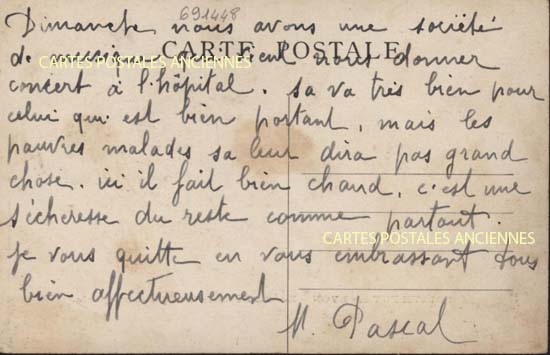 691448
Dimanche nous avons une société
CARTE POSTALE
de musique qui vient nous donner
CARTES POSTALES ANCIENNES
concert à l'hôpital. sa va très bien pour
celui qui est bien portant, mais les
pauvres malades sa leur dira pas grand
chose. ici il fait bien chaud, c'est une
sécheresse du reste comme partout.
CARTES POSTALES ANCIENNES
Je vous quitte en vous embrassant tous
bien affectueusement
M. Pascal